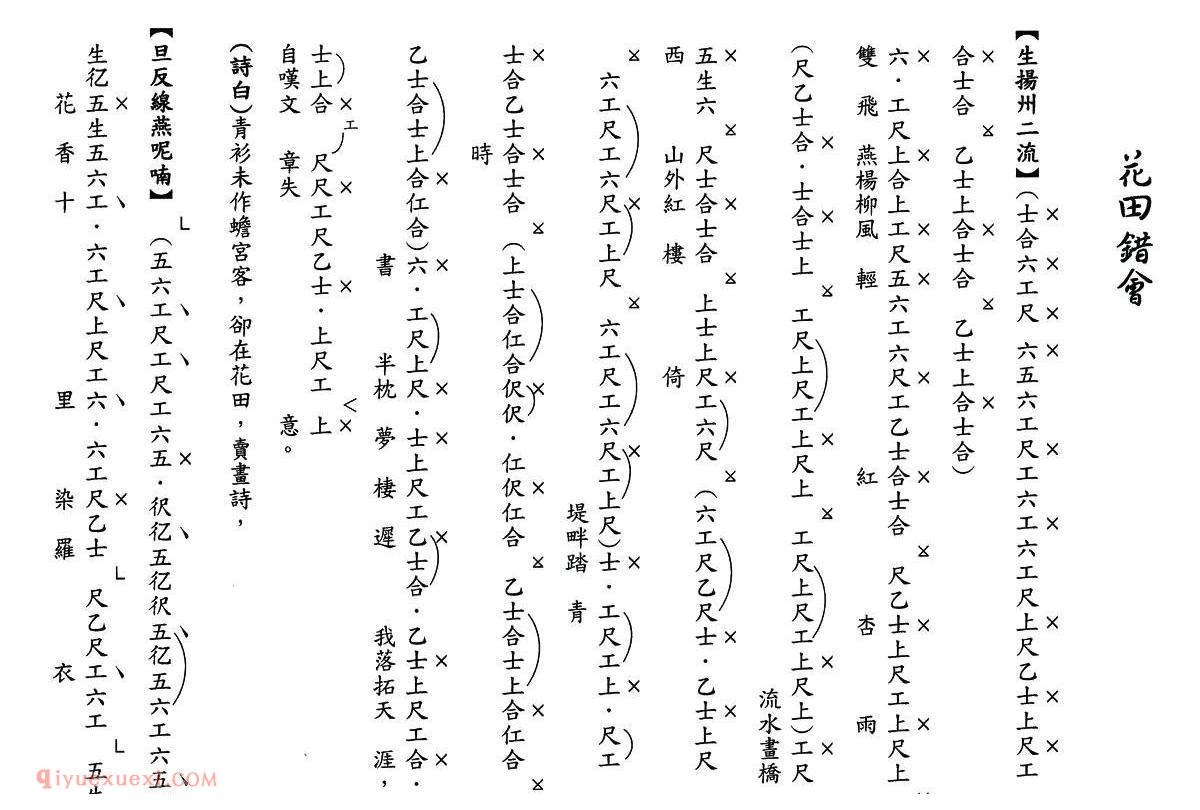 花田錯會
【生揚州二流】(士合六工尺 六五六工尺工六工六工尺上尺乙士上尺工
合士合 乙士上合士合 乙士上合士合)
六·工尺上合上工尺五六工六尺工乙士合士合 尺乙士上尺工上尺上
雙飛燕楊柳風輕 紅杏雨
(尺乙士合·士合士上 工尺上尺工上尺上 工尺上尺工上尺上)工尺
流水畫橋
五生六 尺士合士合 上士上尺工六尺 (六工尺乙尺士·乙士上尺
西 山外紅樓 倚
六工尺工六尺工上尺 六工尺工六尺工上尺)士·工尺工上·尺工
堤畔踏青
士合乙士合士合 (上士合仜合伬伬·仜伬仜合 乙士合士上合仜合
時
乙士合士上合仜合)六·工尺上尺·士上尺工乙士合·乙士上尺工合·
書 半枕夢棲遲 我落拓天涯,
士上合 工 尺尺工尺乙士·上尺工 上
自嘆文章失意。
(詩白)青衫未作蟾宮客,卻在花田,賣畫詩,
【旦反線燕呢喃】 (五六工尺工尺工六五·伬亿五亿伬五亿五六工六五
生亿五生五六工·六工尺上尺工六·六工尺乙士 尺乙尺工六工 五生
花香十里染羅衣
qiyuexuexi.com